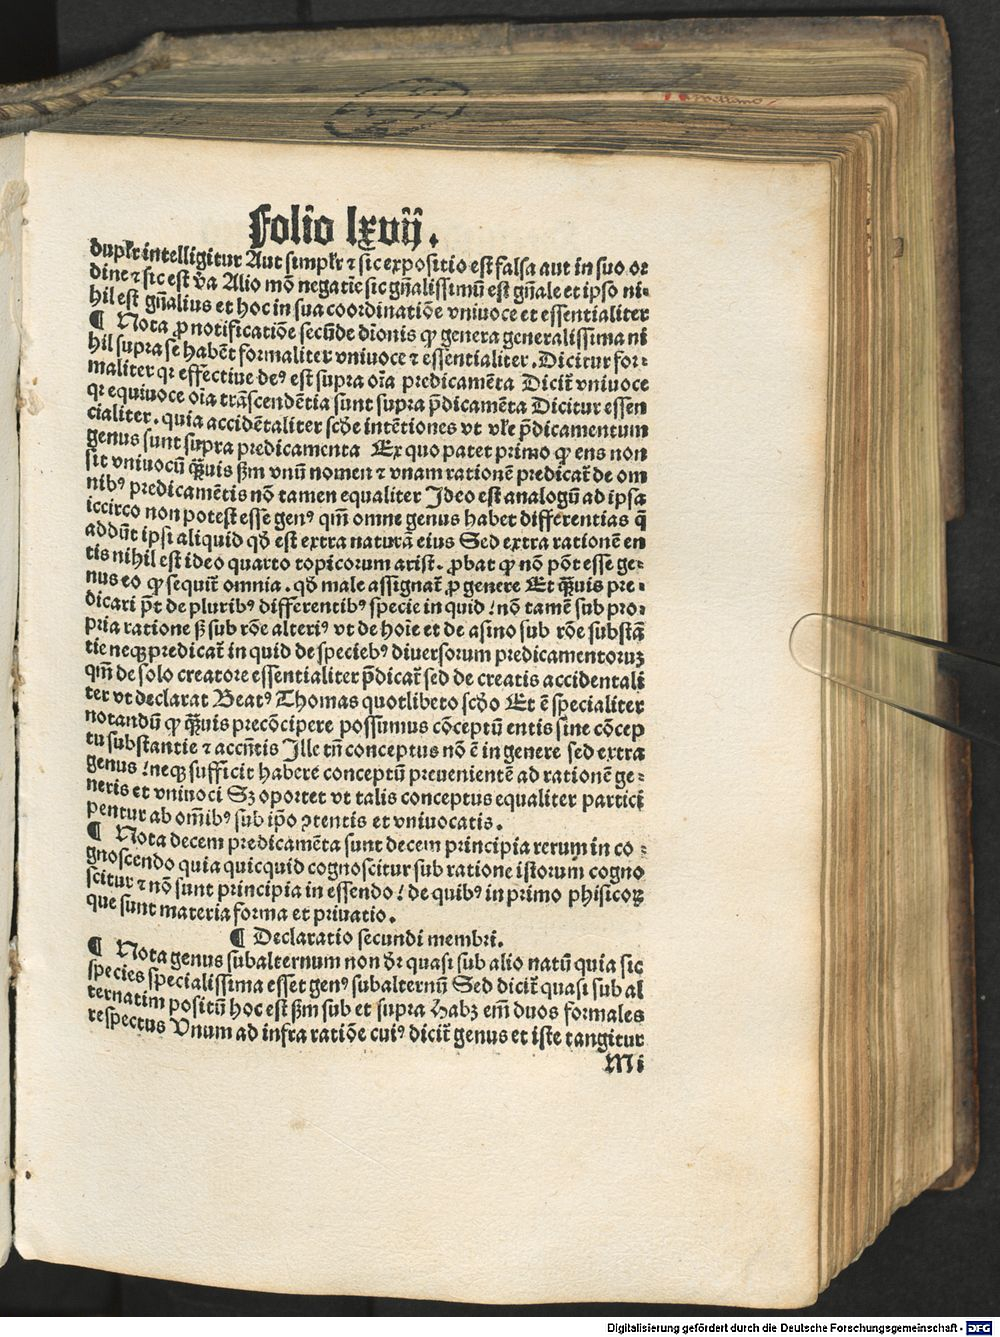 Folio lxvij.
duplr̄ intelligitur Aut simplr̄ ⁊ sic expositio est falsa aut in suo or
dine ⁊ sic est v̄a Alio mō negatiē sic gn̄alissimū est gn̄ale et ipso ni⸗
hil est gn̄alius et hoc in sua coordinatiōe vniuoce et essentialiter
¶ Nota ꝓ notificatiōe secūde dīonis ꝙ genera generalissima ni
hil supra se habēt formaliter vniuoce ⁊ essentialiter. Dicitur for⸗
maliter qꝛ effectiue deꝰ est supra oīa predicamēta Dicit̄ vniuoce
qꝛ equiuoce oīa trāscendētia sunt supra p̄dicamēta Dicitur essen
cialiter. quia accidētaliter scd̄e intētiones vt vl̄e p̄dicamentum
genus sunt supra predicamenta Ex quo patet primo ꝙ ens non
sit vniuocū qꝫuis ßm vnū nomen ⁊ vnam rationē predicat̄ de om
nibꝰ predicamētis nō tamen equaliter Ideo est analogū ad ipsa
iccirco non potest esse genꝰ qm̄ omne genus habet differentias q̄
addūt ipsi aliquid qd̄ est extra naturā eius Sed extra rationē en
tis nihil est ideo quarto topicorum arist. ꝓbat ꝙ nō pōt esse ge⸗
nus eo ꝙ sequit̄ omnia. qd̄ male assignat̄ ꝓ genere Et qꝫuis pre⸗
dicari p̄t de pluribꝰ differentibꝰ specie in quid / nō tamē sub pro⸗
pria ratione ß sub rōe alteriꝰ vt de hoīe et de asino sub rōe substā
tie neqꝫ predicat̄ in quid de speciebꝰ diuersorum predicamentoruꝫ
qm̄ de solo creatore essentialiter p̄dicat̄ sed de creatis accidentali
ter vt declarat Beatꝰ Thomas quotlibeto scd̄o Et ē specialiter
notandū ꝙ qꝫuis precōcipere possumus cōceptū entis sine cōcep
tu substantie ⁊ accn̄tis Ille tn̄ conceptus nō ē in genere sed extra
genus / neqꝫ sufficit habere conceptū preuenientē ad rationē ge⸗
neris et vniuoci Sꝫ oportet vt talis conceptus equaliter partici
pentur ab om̄ibꝰ sub ip̄o ꝯtentis et vniuocatis.
¶ Nota decem predicamēta sunt decem principia rerum in co⸗
gnoscendo quia quicquid cognoscitur sub ratione istorum cogno
scitur ⁊ nō sunt principia in essendo / de quibꝰ in primo phisicoꝝ
que sunt materia forma et priuatio.
¶ Declaratio secundi membri.
¶ Nota genus subalternum non dr̄ quasi sub alio natū quia sic
species specialissima esset genꝰ subalternū Sed dicit̄ quasi sub al
ternatim positū hoc est ßm sub et supra Habꝫ em̄ duos formales
respectus Vnum ad infra ratiōe cuiꝰ dicit̄ genus et iste tangitur
M i
Digitalisierung gefördert durch die Deutsche Forschungsgemeinschaft - DFG